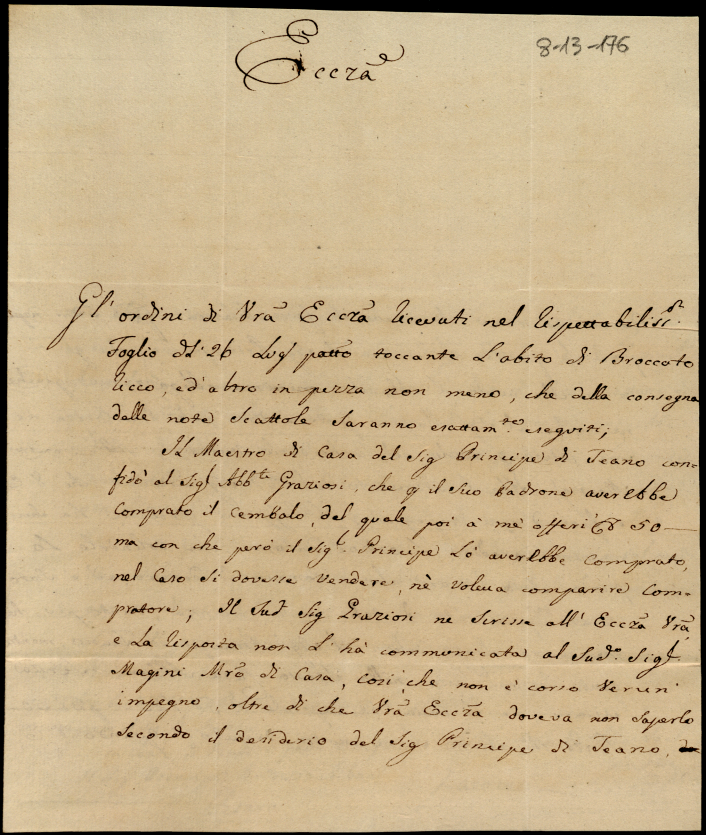 8-13-176
Eccza
Gl' ordini di Vrã Ecczã ricevuti nel rispettabiliss.
Foglio dd' 26 Lug patto toccante L'abito di Broccato
ricco, ed' altro in pezza non meno, che della consegna
delle note Scattole Saranno esattam.te eseguiti;
Il Maestro di Casa del Sig Principe di Teano con=
fidò al Sigl Abb.te Graziosi, che q il Suo Padrone averebbe
Comprato il Cembalo, del quale poi à mè offerì 50—
ma con che però il Sigl. Principe Lò averebbe Comprato,
nel Caso Si dovesse Vendere, nè Voleva comparire Com=
pratore; Il Sud Sig Graziosi ne Scrisse all' Ecczã Vrã,
e La risposta non L' hà communicata al Sud.o Sigl
Magini Mrõ di Casa, Così, che non è corso Verun'
impegno, oltre di che Vrã Ecczã doveva non Saperlo
Secondo il desiderio del Sig Principe di Teano,